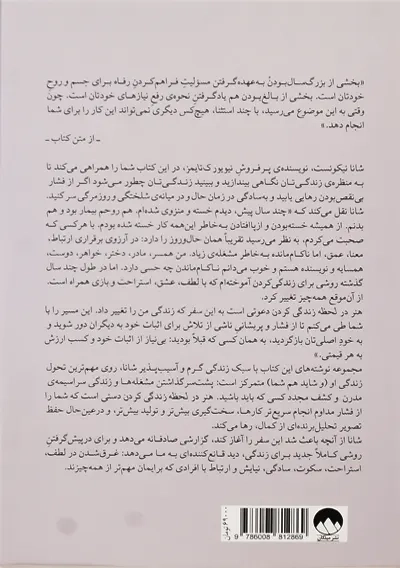 «بخشی از بزرگ‌سال‌بودن به‌عهده‌گرفتن مسئولیتِ فراهم‌کردنِ رفاه برای جسم و روحِ
خودتان است. بخشی از بالغ‌بودن هم یادگرفتنِ نحوه‌ی رفع نیازهای خودتان است. چون
وقتی به این موضوع می‌رسید، با چند استثنا، هیچ‌کس دیگری نمی‌تواند این کار را برای شما
انجام دهد.»
ـ از متن کتاب ـ
شانا نیکوئست، نویسنده‌ی پرفروشِ نیویورک‌تایمز، در این کتاب شما را همراهی می‌کند تا
به منظره‌ی زندگی‌تان نگاهی بیندازید و ببینید زندگی‌تان چطور می‌شود اگر از فشار
بی‌نقص‌بودن رهایی یابید و به‌سادگی در زمان حال و در میانه‌ی شلختگی و روزمرگی سر کنید.
شانا نقل می‌کند که «چند سال پیش، دیدم خسته و منزوی شده‌ام. هم روحم بیمار بود و هم
بدنم. از همیشه خسته‌بودن و ازپاافتادن به‌خاطر این‌همه کار خسته شده بودم. با هرکسی که
صحبت می‌کردم، به نظر می‌رسید تقریباً همان حال‌وروز را دارد: در آرزوی برقراری ارتباط،
معنا، عمق، اما ناکام‌مانده به‌خاطر مشغله‌ی زیاد. من همسر، مادر، دختر، خواهر، دوست،
همسایه و نویسنده هستم و خوب می‌دانم ناکام‌ماندن چه حسی دارد. اما در طول چند سال
گذشته روشی برای زندگی‌کردن آموخته‌ام که با لُطف، عشق، استراحت و بازی همراه است.
از آن‌موقع همه‌چیز تغییر کرد.
هنر در لحظه زندگی کردن دعوتی است به این سفر که زندگی من را تغییر داد. این مسیر را با
شما طی می‌کنم تا از فشار و پریشانیِ ناشی از تلاش برای اثبات خود به دیگران دور شوید و
به خودِ اصلی‌تان بازگردید، به همان کسی که قبلاً بودید: بی‌نیاز از اثبات خود و کسب ارزش
به هر قیمتی.»
مجموعه نوشته‌های این کتاب با سبک زندگی گرم و آسیب‌پذیر شانا، روی مهم‌ترین تحول
زندگی او (و شاید هم شما) متمرکز است: پشت‌سرگذاشتن مشغله‌ها و زندگی سراسیمه‌ی
مدرن و کشف مجدد کسی که باید باشید. هنر در لحظه زندگی کردن دستی است که شما را
از فشار مداوم انجام سریع‌تر کارها، سخت‌گیری بیش‌تر و تولید بیش‌تر، و درعین‌حال حفظ
تصویر تحلیل‌برنده‌ای از کمال، رها می‌کند.
شانا از آنچه باعث شد این سفر را آغاز کند، گزارشی صادقانه می‌دهد و برای درپیش‌گرفتنِ
روشی کاملاً جدید برای زندگی، دید قانع‌کننده‌ای به ما می‌دهد: غرق‌شدن در لطف،
استراحت، سکوت، سادگی، نیایش و ارتباط با افرادی که برایمان مهم‌تر از همه‌چیزند.
۶۹۰۰۰ تومان
9 786008 812869
نشر میلکان